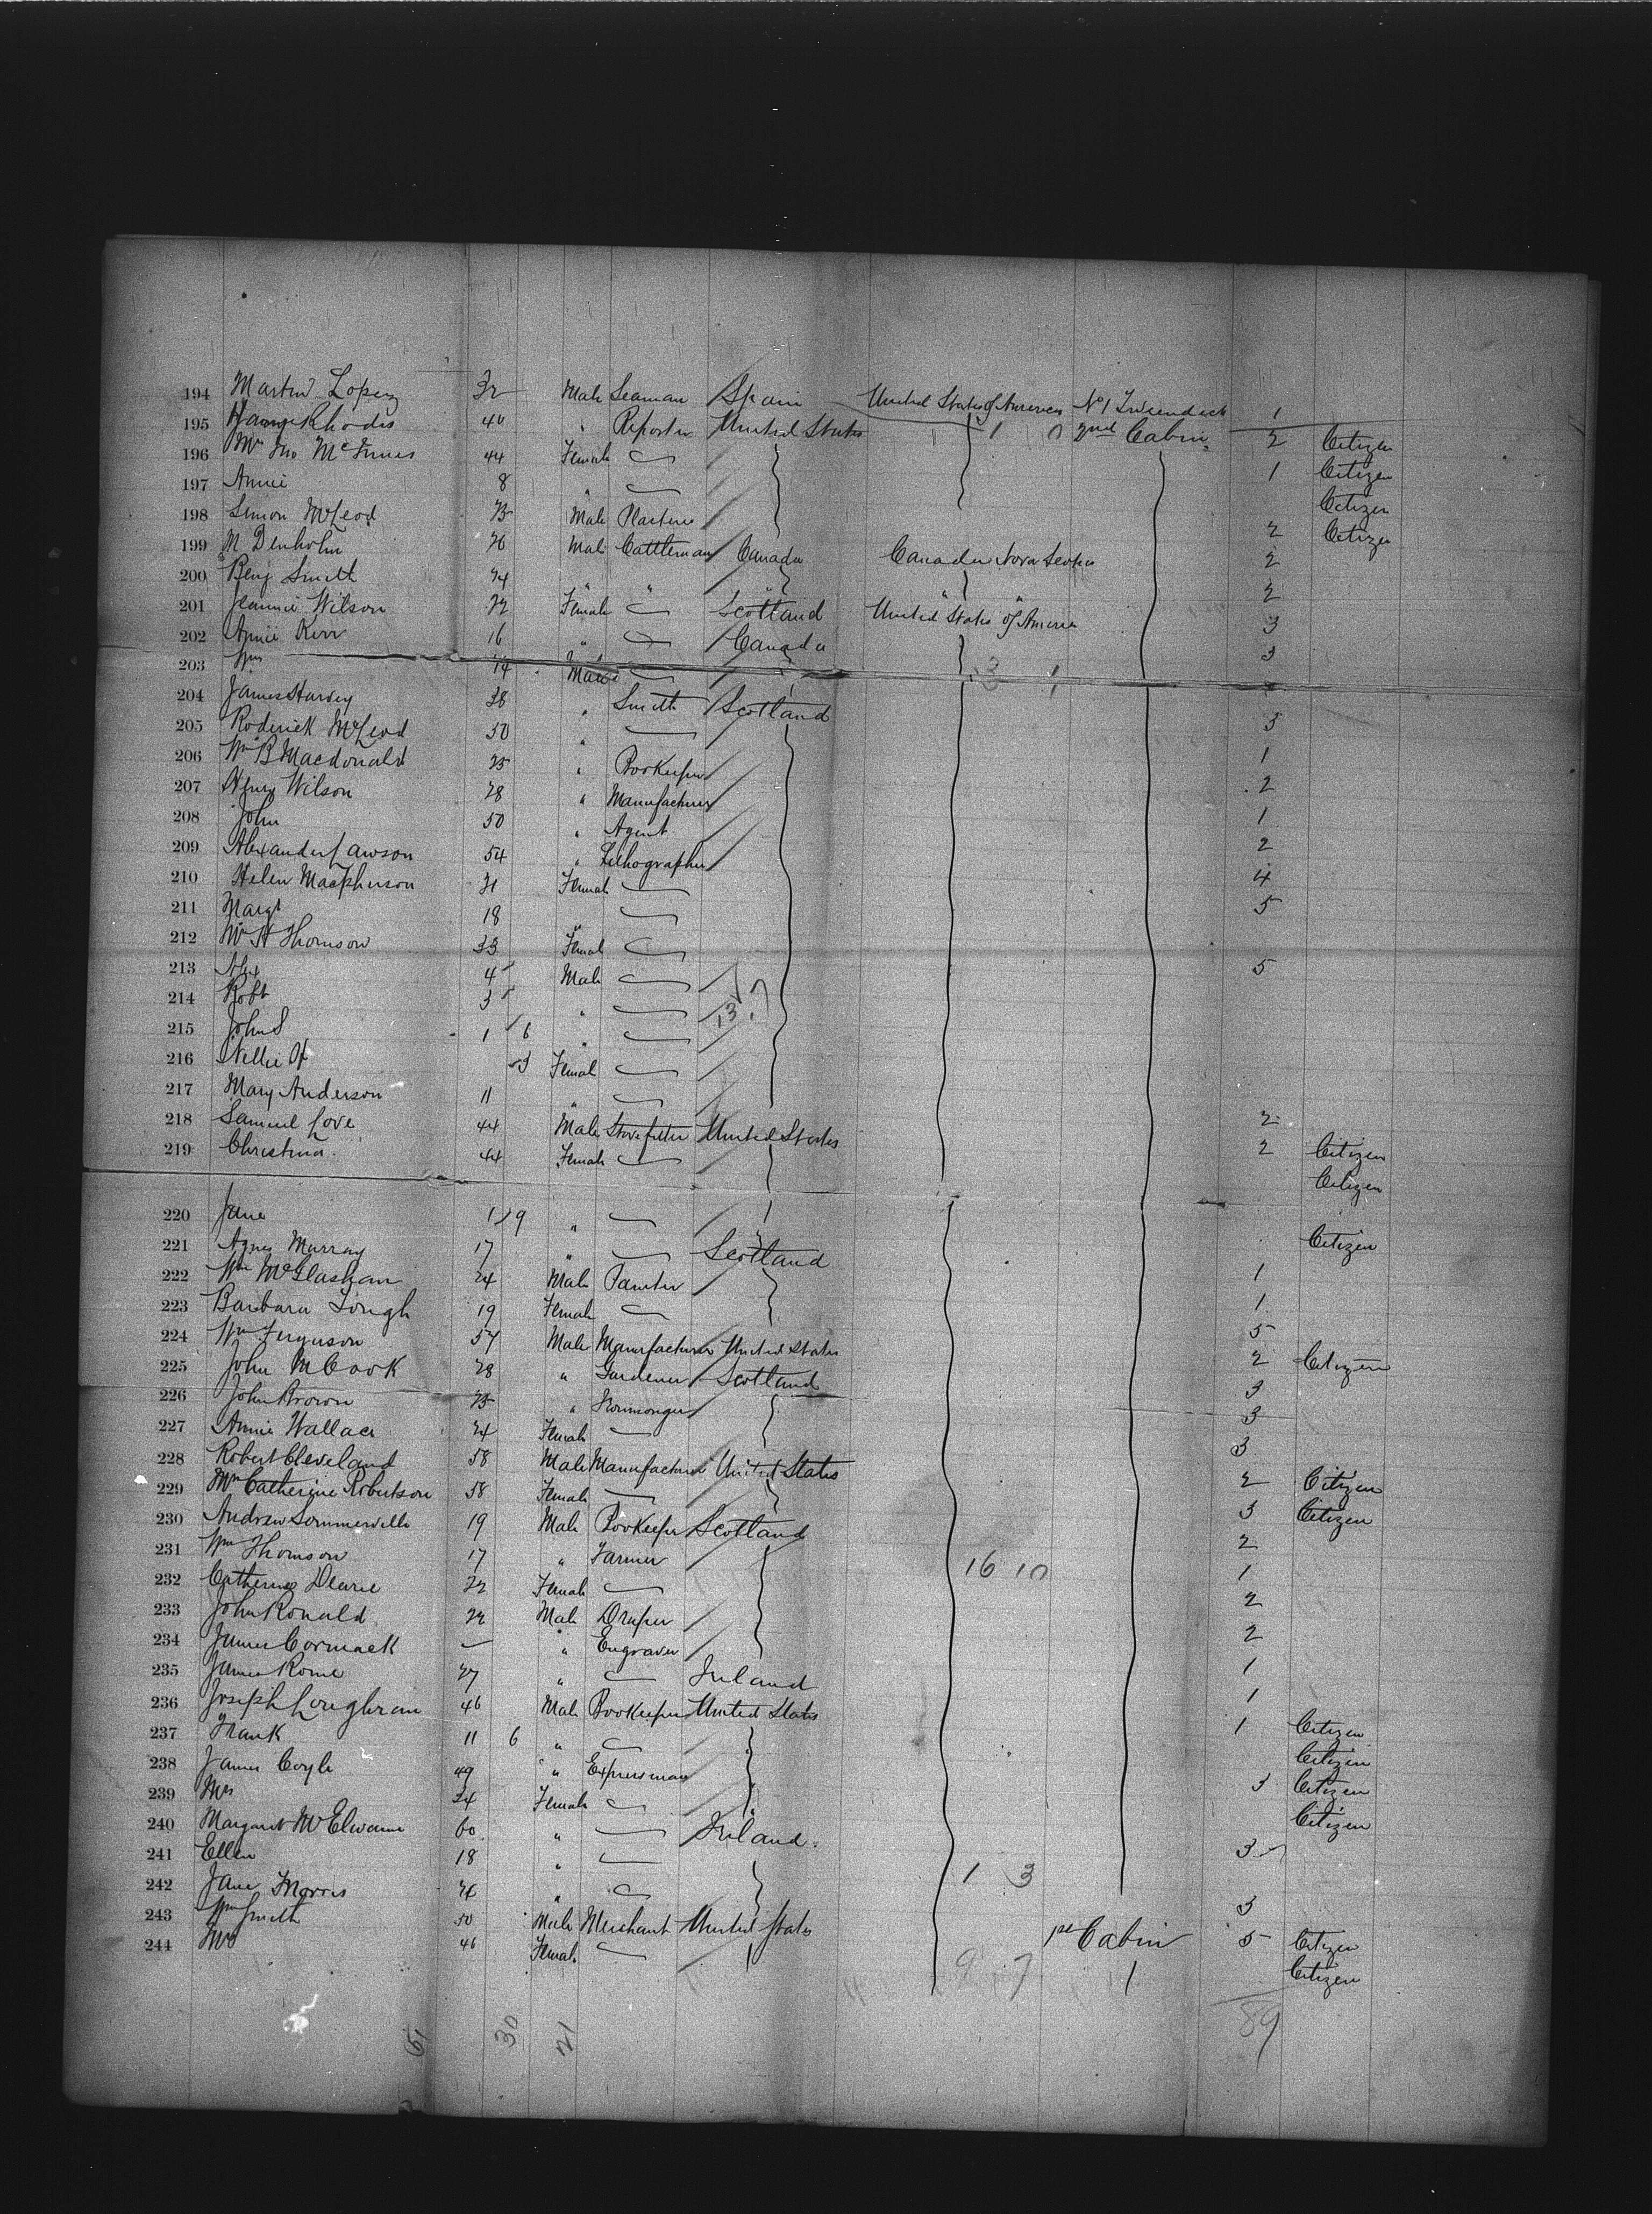 194 Martin Lopez 32 Male Seaman Spain United States of America No 1 Tweendeck 1
195 Rhodes 40 " Reporter United States 1 0 2nd Cabin 2 Citizen
196 Mrs Jno McInnes 44 Female 1 Citizen
197 Annie 8 " Citizen
198 Simon McLeod Male 2 Citizen
199 M Denholm 26 Male Cattleman Canada Canada Nova Scotia 2
200 Benj Smith 24 " " " " 2
201 Jeannie Wilson 22 Female Scotland United States of America 3
202 Annie Kerr 16 " Canada 3
203 Wm 14 Male 3 1
204 James Harvey 38 " Smith Scotland 3
205 Roderick McLeod 50 " 1
206 Wm B Macdonald 25 " Bookeeper 2
207 Henry Wilson 28 " Manufacturer 1
208 John 50 " Agent 2
209 Alexander Lawson 54 " Lithographer 4
210 Helen Macpherson 31 Female 5
211 Margt 18 "
212 Mrs H Thomson 33 Female 5
213 Alex 4 Male
214 Robt 3 " 13 7
215 John S 1 6 "
216 Nellie 3 Female
217 Mary Anderson 11 " 2
218 Samuel Love 44 Male Storefitter United States 2 Citizen
219 Christina 44 Female Citizen
220 Jane 1 9 " Citizen
221 Agnes Murray 17 " Scotland 1
222 Wm McGlashan 24 Male Painter 1
223 Barbara Lough 19 Female 5
224 Wm Ferguson 57 Male Manufacturer United States 2 Citizen
225 John M Cook 28 " Gardener Scotland 3
226 John Brown 25 " Ironmonger 3
227 Annie Wallace 24 Female 3
228 Robert Cleveland 58 Male Manufacturer United States 2 Citizen
229 Mrs Catherine Robertson 58 Female 3 Citizen
230 Andrew Sommerville 19 Male Bookeeper Scotland 2
231 Wm Thomson 17 " Farmer 16 10 1
232 Catherine 22 Female 2
233 John Ronald 22 Male Draper 2
234 James Cormack " Engraver 1
235 James Rome 27 " Ireland 1
236 Joseph Loughran 46 Male Bookeeper United States 1 Citizen
237 Frank 11 6 " Citizen
238 James Coyle 49 " Expressman 3 Citizen
239 Mrs 34 Female Citizen
240 Margaret McElwaine 60 " Ireland 3
241 Ellen 18 " 1 3
242 Jane Morris 24 " 3
243 Wm Smith 50 Male Merchant United States 1st Cabin 5 Citizen
244 Mrs 46 Female 9 7 Citizen
51 30 21 89